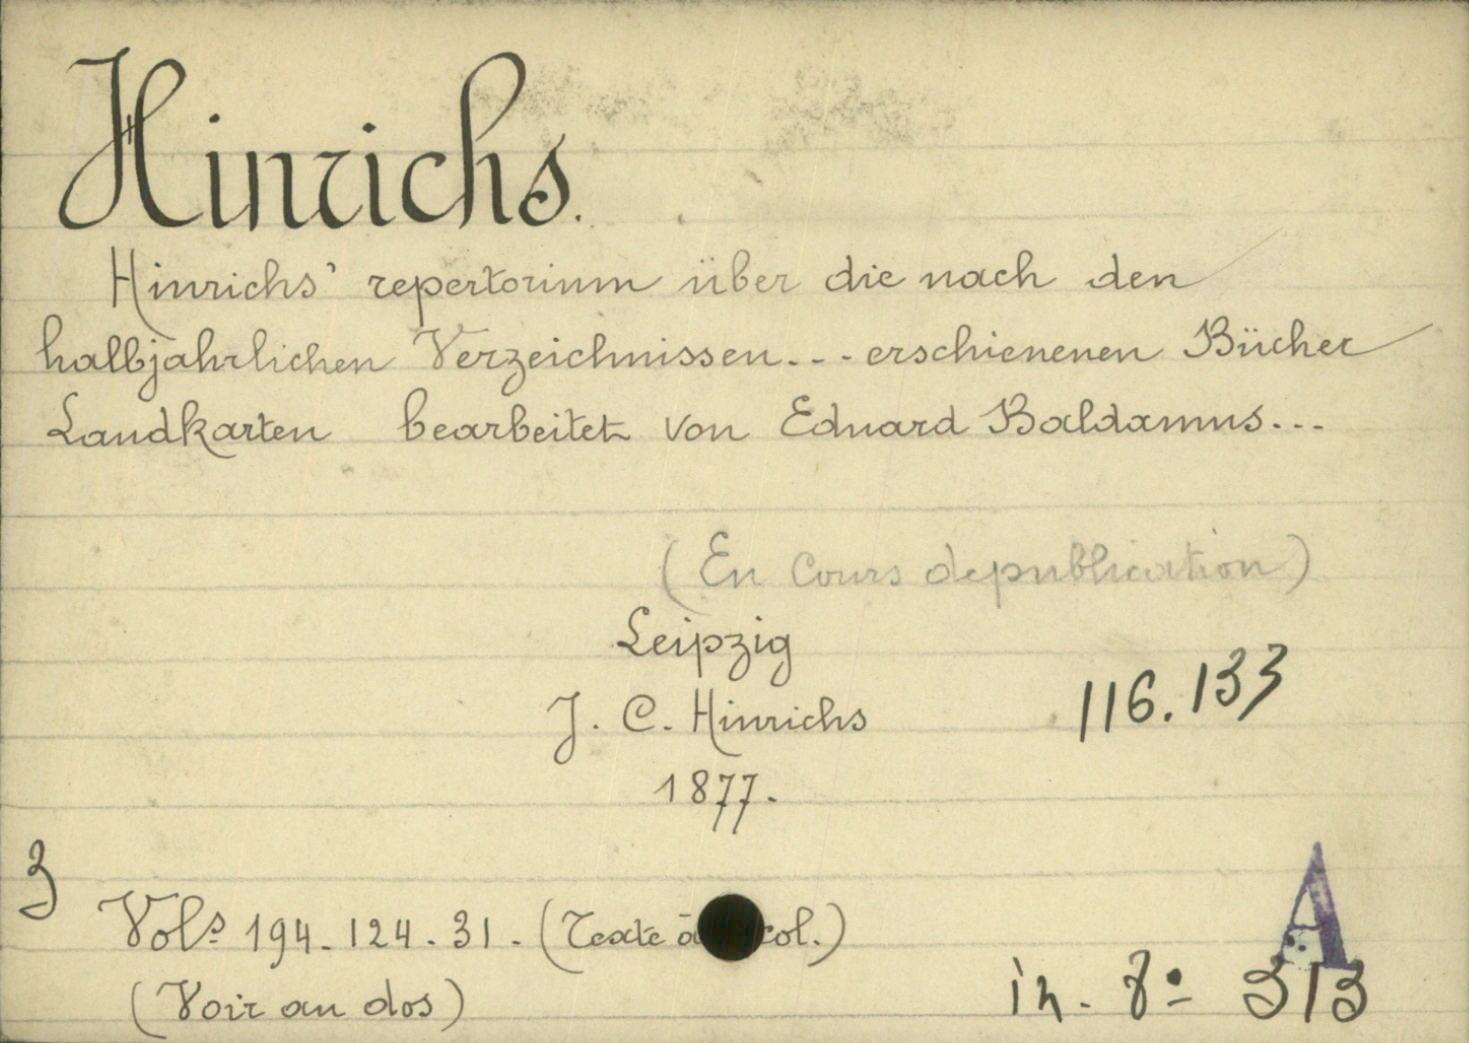 Hinrichs.
Hinrichs' repertorium über die nach den
halbjahrlichen Verzeichnissen... erschienenen Bücher
Landkarten bearbeitet von Eduard Baldamus...
(En Cours de publication)
Leipzig
J. C. Hinrichs
116.133
1877.
3 Vols 194-124.31. (Texte à col.)
A
(Voir au dos)
in-8º 313